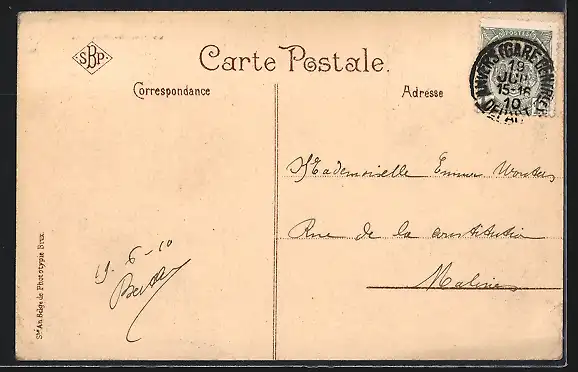 SBP
Carte Postale.
Correspondance
Adresse
POSTES
ANVERS (GARE CENTRALE)
19
JUIN
15-16
10
DEPART
Mademoiselle Emma Wouters
Rue de la Constitution
Malines
19-6-10
Berthe
Sté An. Belge de Phototypie Brux.